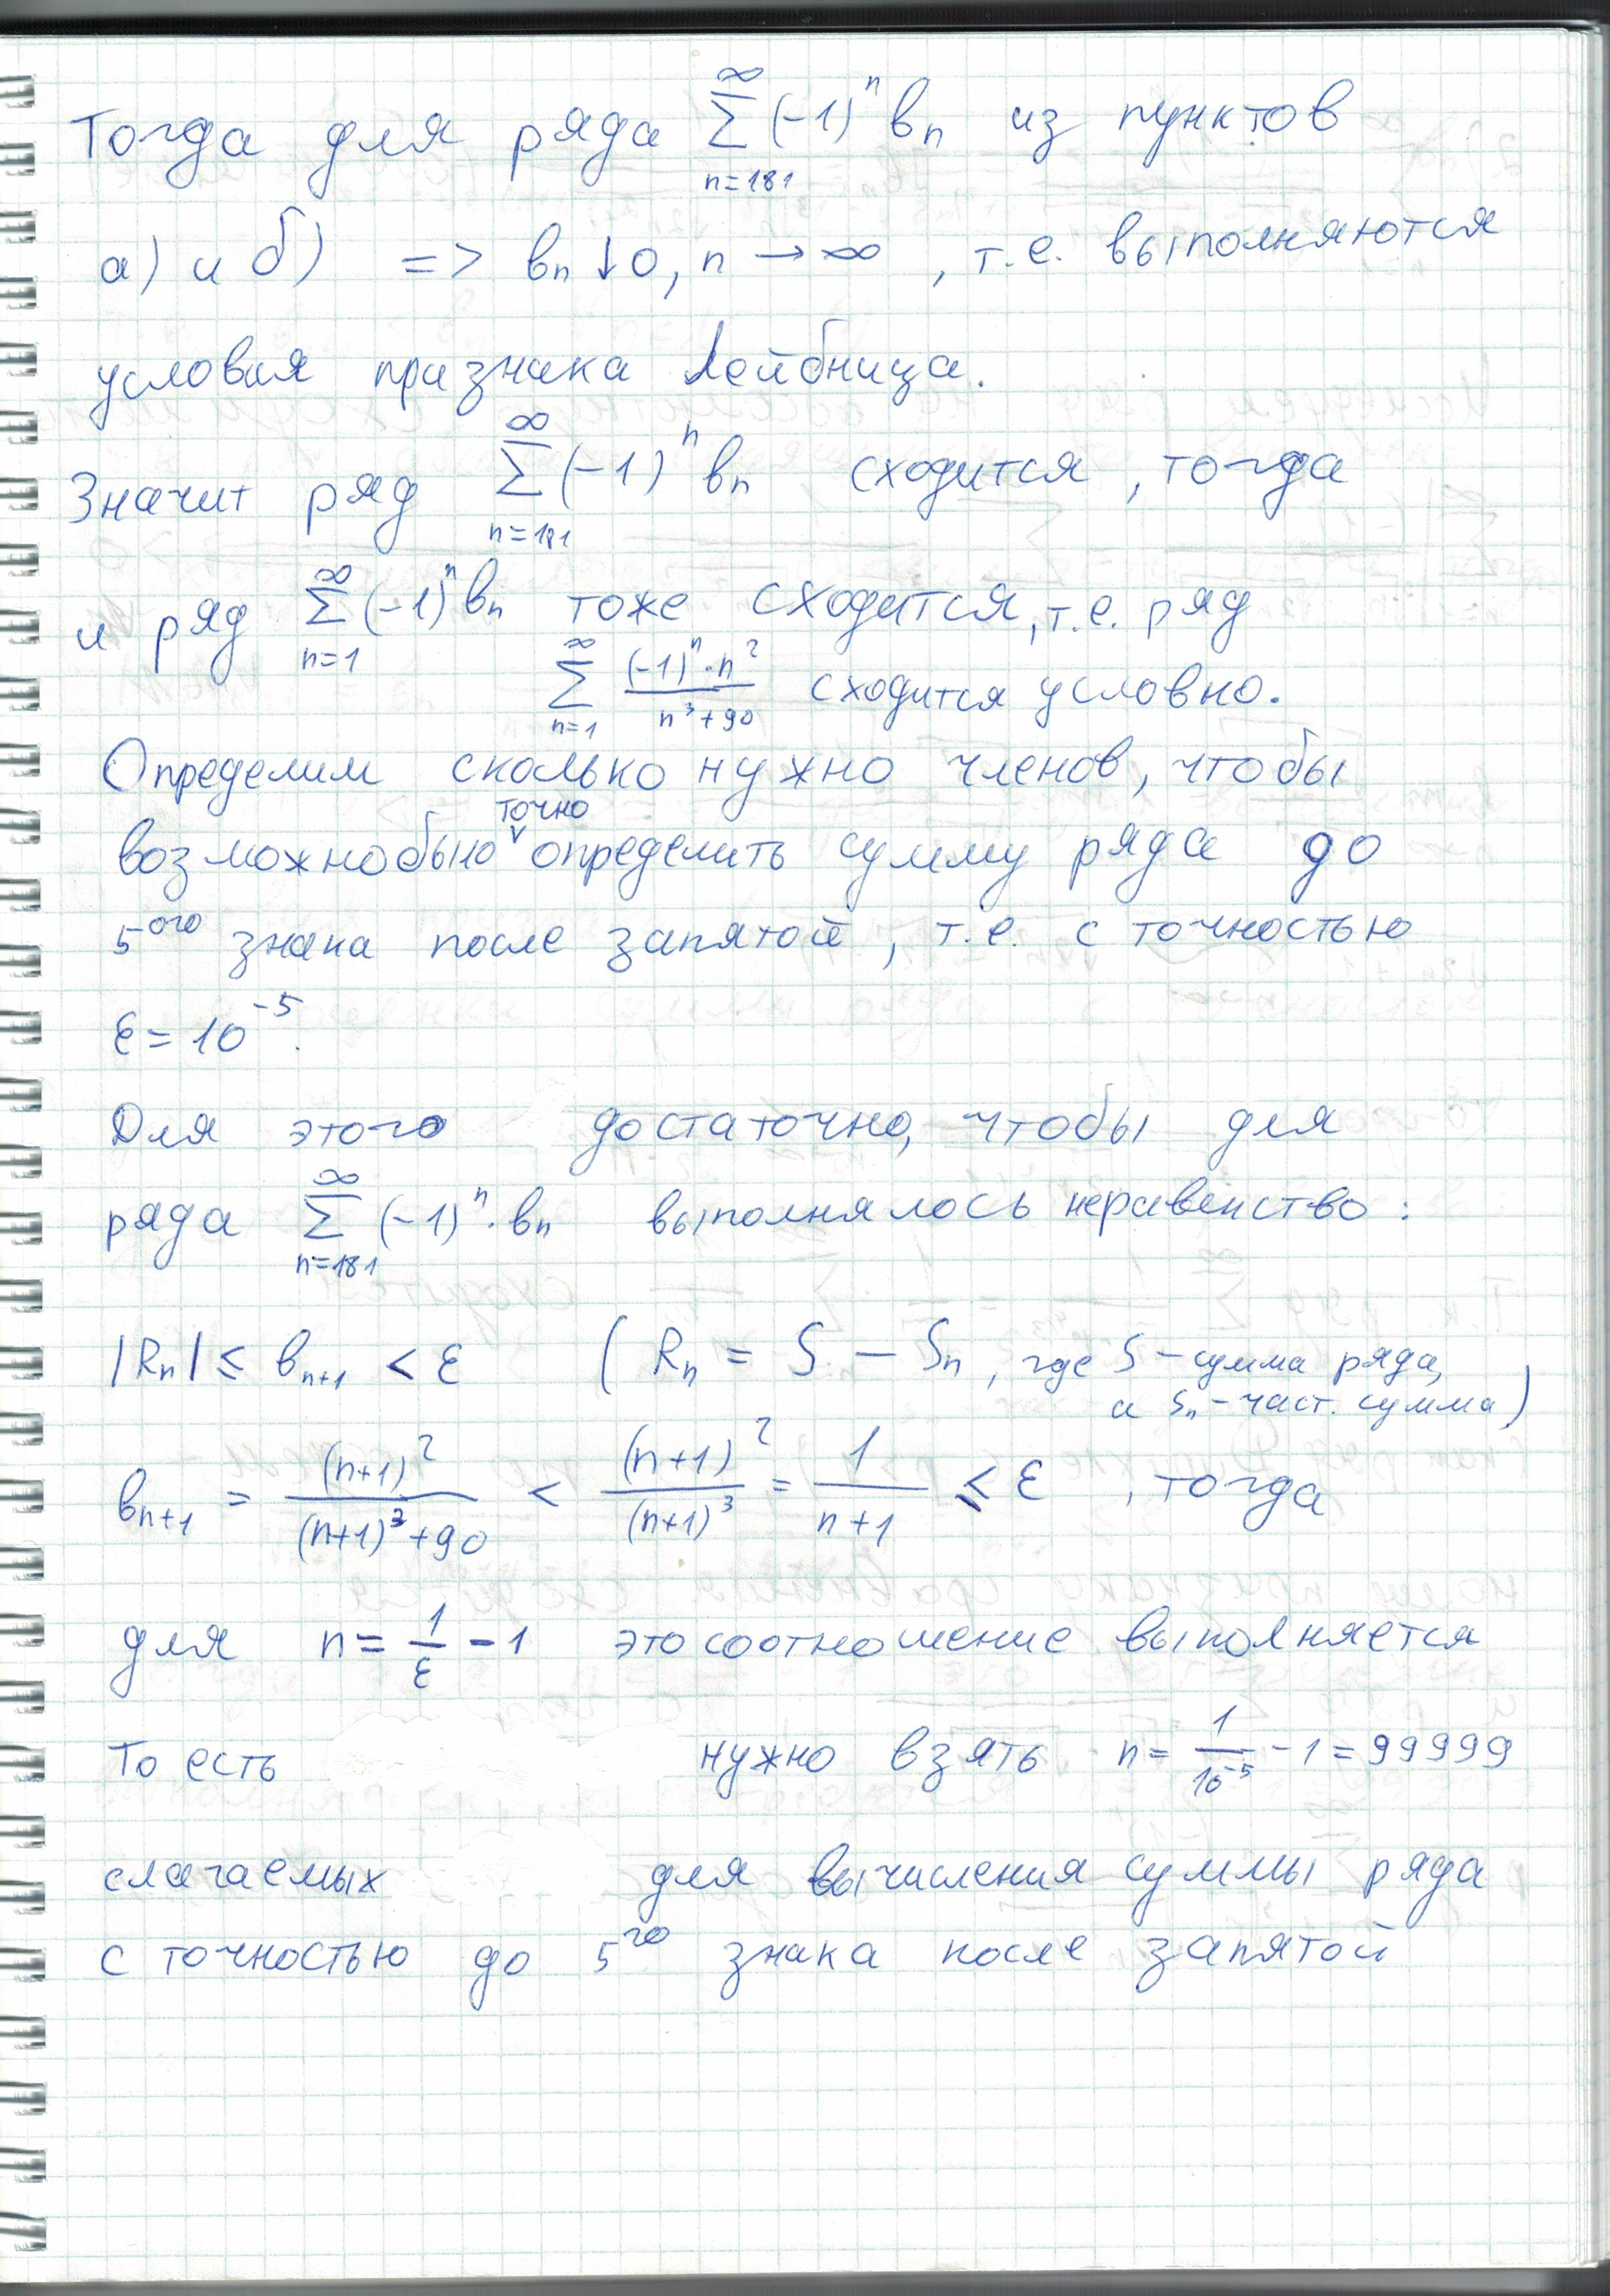 Тогда для ряда ∑_{n=181}^{∞} (-1)^n b_n из пунктов
а) и б) => b_n ↓ 0, n → ∞, т.е. выполняются
условия признака Лейбница.
Значит ряд ∑_{n=181}^{∞} (-1)^n b_n сходится, тогда
и ряд ∑_{n=1}^{∞} (-1)^n b_n тоже сходится, т.е. ряд
∑_{n=1}^{∞} (-1)^n·n^2 / (n^3+90) сходится условно.
Определим сколько нужно членов, чтобы
возможно было точно определить сумму ряда до
5^ого знака после запятой, т.е. с точностью
ε = 10^{-5}.
Для этого достаточно, чтобы для
ряда ∑_{n=181}^{∞} (-1)^n·b_n выполнялось неравенство:
|R_n| ≤ b_{n+1} < ε ( R_n = S – S_n, где S – сумма ряда,
а S_n – част. сумма)
b_{n+1} = (n+1)^2 / ((n+1)^3+90) < (n+1)^2 / (n+1)^3 = 1 / (n+1) ≤ ε, тогда
для n = 1/ε - 1 это соотношение выполняется
То есть нужно взять n = 1/10^{-5} - 1 = 99999
слагаемых для вычисления суммы ряда
с точностью до 5^го знака после запятой